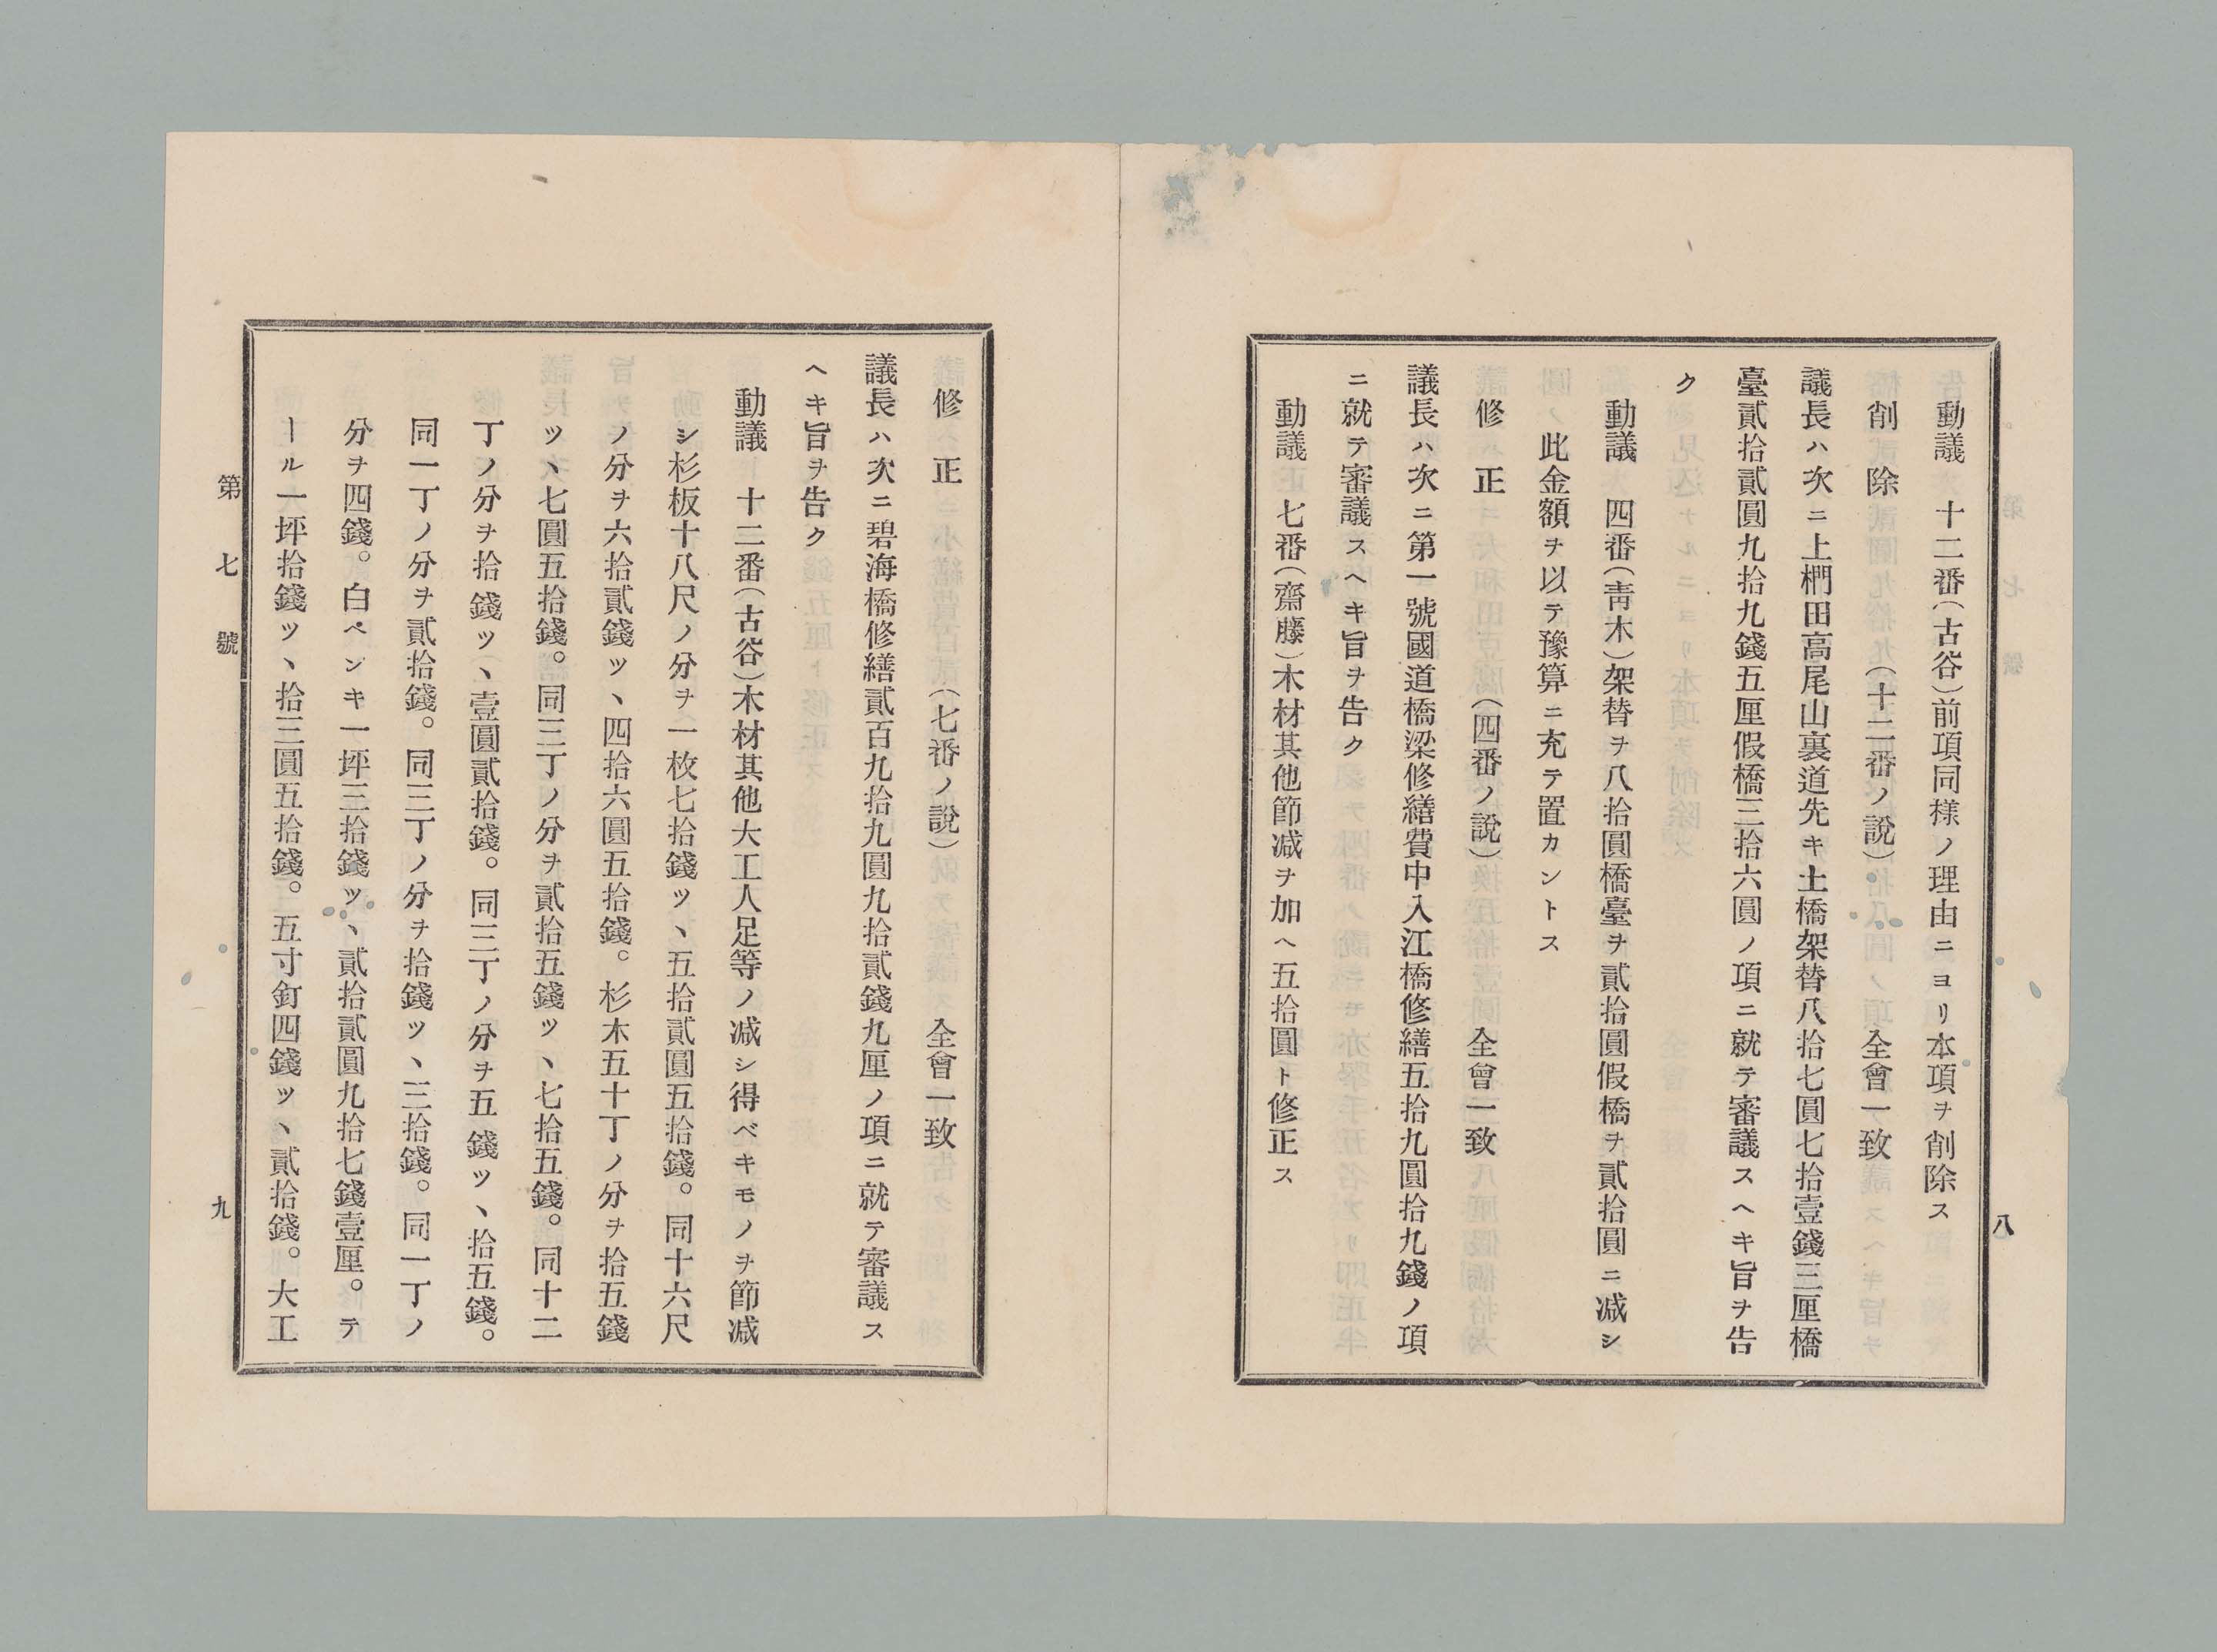 八
動議　十二番（古谷）前項同樣ノ理由ニヨリ本項ヲ削除ス
削　除　　　　　（十二番ノ說）　　　　　全會一致
議長ハ次ニ上椚田高尾山裏道先キ土橋架替八拾七圓七拾壹錢三厘橋
臺貳拾貳圓九拾九錢五厘假橋三拾六圓ノ項ニ就テ審議スヘキ旨ヲ告
ク
動議　四番（靑木）架替ヲ八拾圓橋臺ヲ貳拾圓假橋ヲ貳拾圓ニ減シ
此金額ヲ以テ豫算ニ充テ置カントス
修　正　　　　　（四番ノ說）　　　　　全會一致
議長ハ次ニ第一號國道橋梁修繕費中入江橋修繕五拾九圓拾九錢ノ項
ニ就テ審議スヘキ旨ヲ告ク
動議　七番（齋藤）木材其他節減ヲ加ヘ五拾圓ト修正ス
修　正　　　　　（七番ノ說）　　　　　全會一致
議長ハ次ニ碧海橋修繕貳百九拾九圓九拾貳錢九厘ノ項ニ就テ審議ス
ヘキ旨ヲ告ク
動議　十二番（古谷）木材其他大工人足等ノ減シ得ベキモノヲ節減
シ杉板十八尺ノ分ヲ一枚七拾錢ツヽ五拾貳圓五拾錢。同十六尺
ノ分ヲ六拾貳錢ツヽ四拾六圓五拾錢。杉木五十丁ノ分ヲ拾五錢
ツヽ七圓五拾錢。同三丁ノ分ヲ貳拾五錢ツヽ七拾五錢。同十二
丁ノ分ヲ拾錢ツヽ壹圓貳拾錢。同三丁ノ分ヲ五錢ツヽ拾五錢。
同一丁ノ分ヲ貳拾錢。同三丁ノ分ヲ拾錢ツヽ三拾錢。同一丁ノ
分ヲ四錢。白ペンキ一坪三拾錢ツヽ貳拾貳圓九拾七錢壹厘。テ
ール一坪拾錢ツヽ拾三圓五拾錢。五寸釘四錢ツヽ貳拾錢。大工
第七號
九